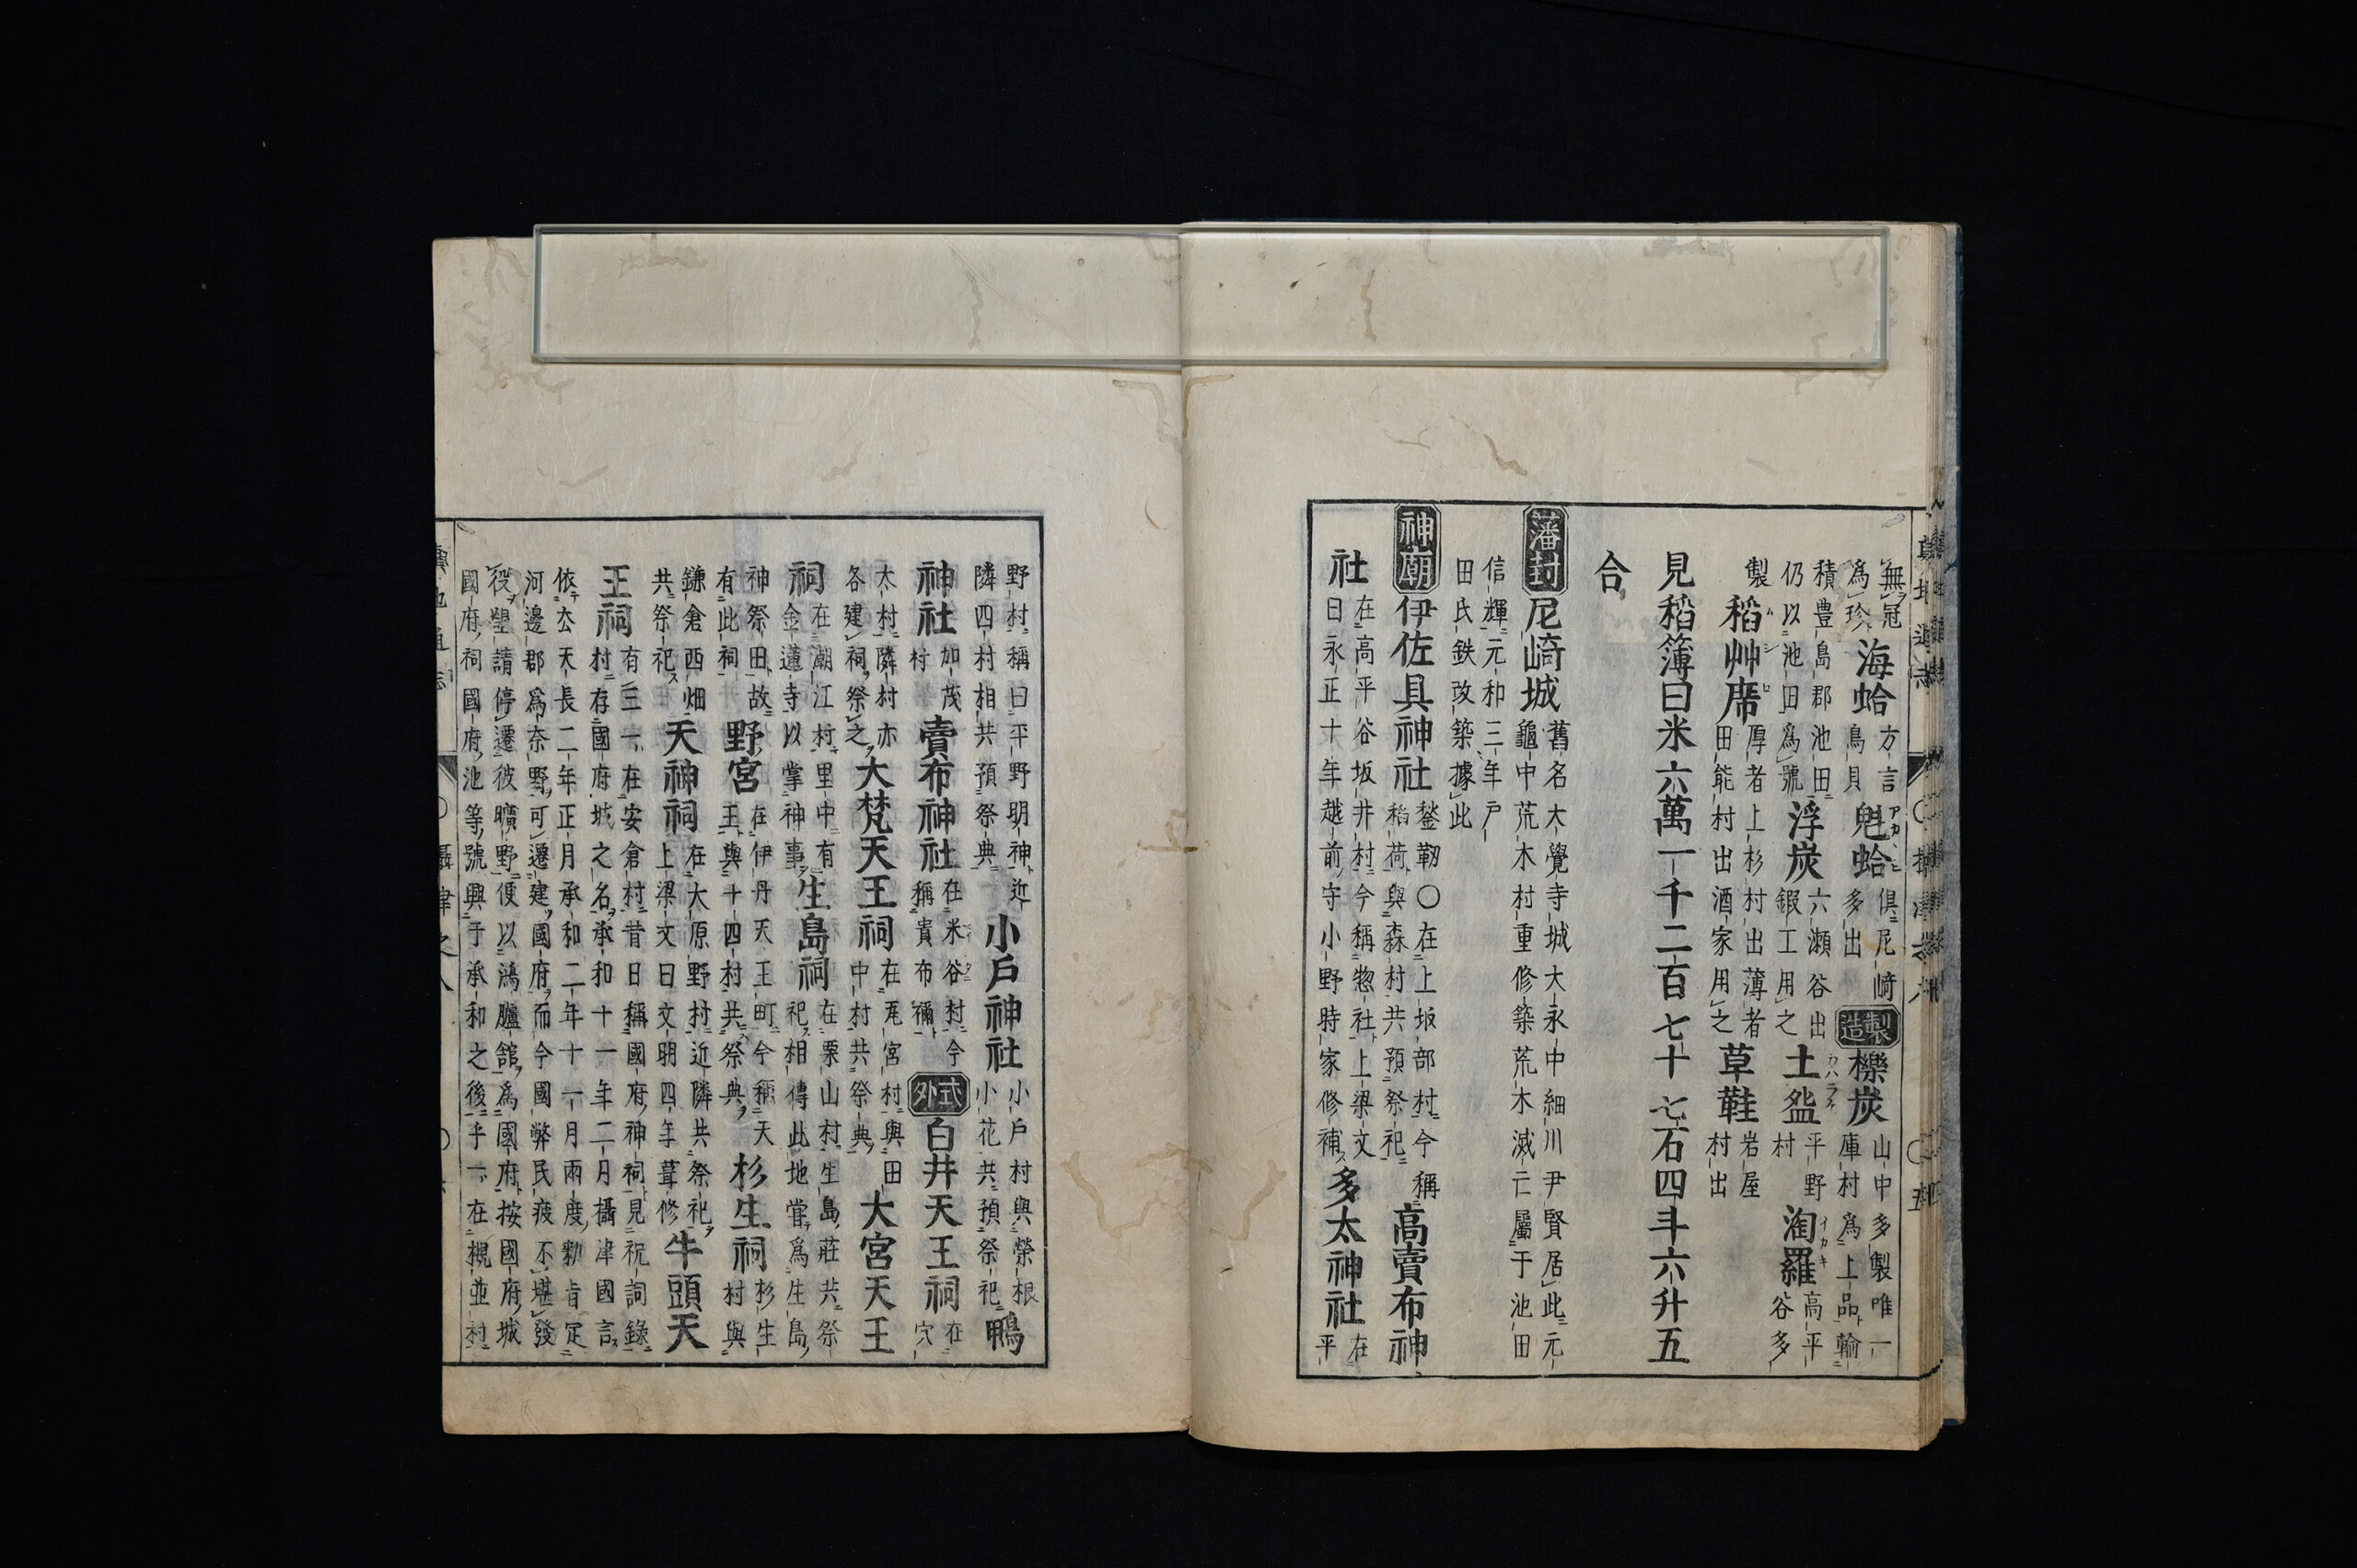 無冠
爲珍
海蛤
方言
鳥貝
魁蛤
アカヽヒ
倶尼﨑
多出
製造
櫟炭
山中多製唯一
庫村爲上品輸
積豊島郡池田
仍以池田爲號
浮炭
六瀬谷出
鍜工用之
土盌
カハラケ
平野
村
淘羅
イカキ
高平
谷多
製
稻艸席
ムシロ
厚者上杉村出薄者
田能村出酒家用之
草鞋
岩屋
村出
見稻簿曰米六萬一千二百七十七石四斗六升五
合
藩封
尼﨑城
舊名大覺寺城大永中細川尹賢居此元
龜中荒木村重修築荒木滅亡屬于池田
信輝元和三年戸
田氏鉄改築據此
神廟
伊佐具神社
鍫靱〇在上坂部村今稱
稻荷與森村共預祭祀
高賣布神
社
在高平谷坂井村今稱惣社上梁文
曰永正十年越前守小野時家修補
多太神社
在
平
野村稱曰平野明神近
隣四村相共預祭典
小戸神社
小戸村與榮根
小花共預祭祀
鴨
神社
加茂
村
賣布神社
在米谷村今
稱貴布禰
式外
白井天王祠
在
穴
太村隣村亦
各建祠祭之
大梵天王祠
在尾宮村與田
中村共祭典
大宮天王
祠
在潮江村里中有
金蓮寺以掌神事
生島祠
在栗山村生島莊共祭
祀相傳此地嘗爲生島
神祭田故
有此祠
野宮
在伊丹天王町今稱天
王與十四村共祭典
杉生祠
杉生
村與
鎌倉西畑
共祭祀
天神祠
在大原野村近隣共祭祀
上梁文曰文明四年葺修
牛頭天
王祠
有三一在安倉村昔日稱國府神祠見祝詞錄
村存國府城之名承和十一年二月攝津國言
依去天長二年正月承和二年十一月兩度勅旨定
河邊郡爲奈野可遷建國府而今國弊民疲不堪發
役望請停遷彼曠野便以鴻臚舘爲國府按國府城
國府祠國府池等號興于承和之後乎一在槻並村